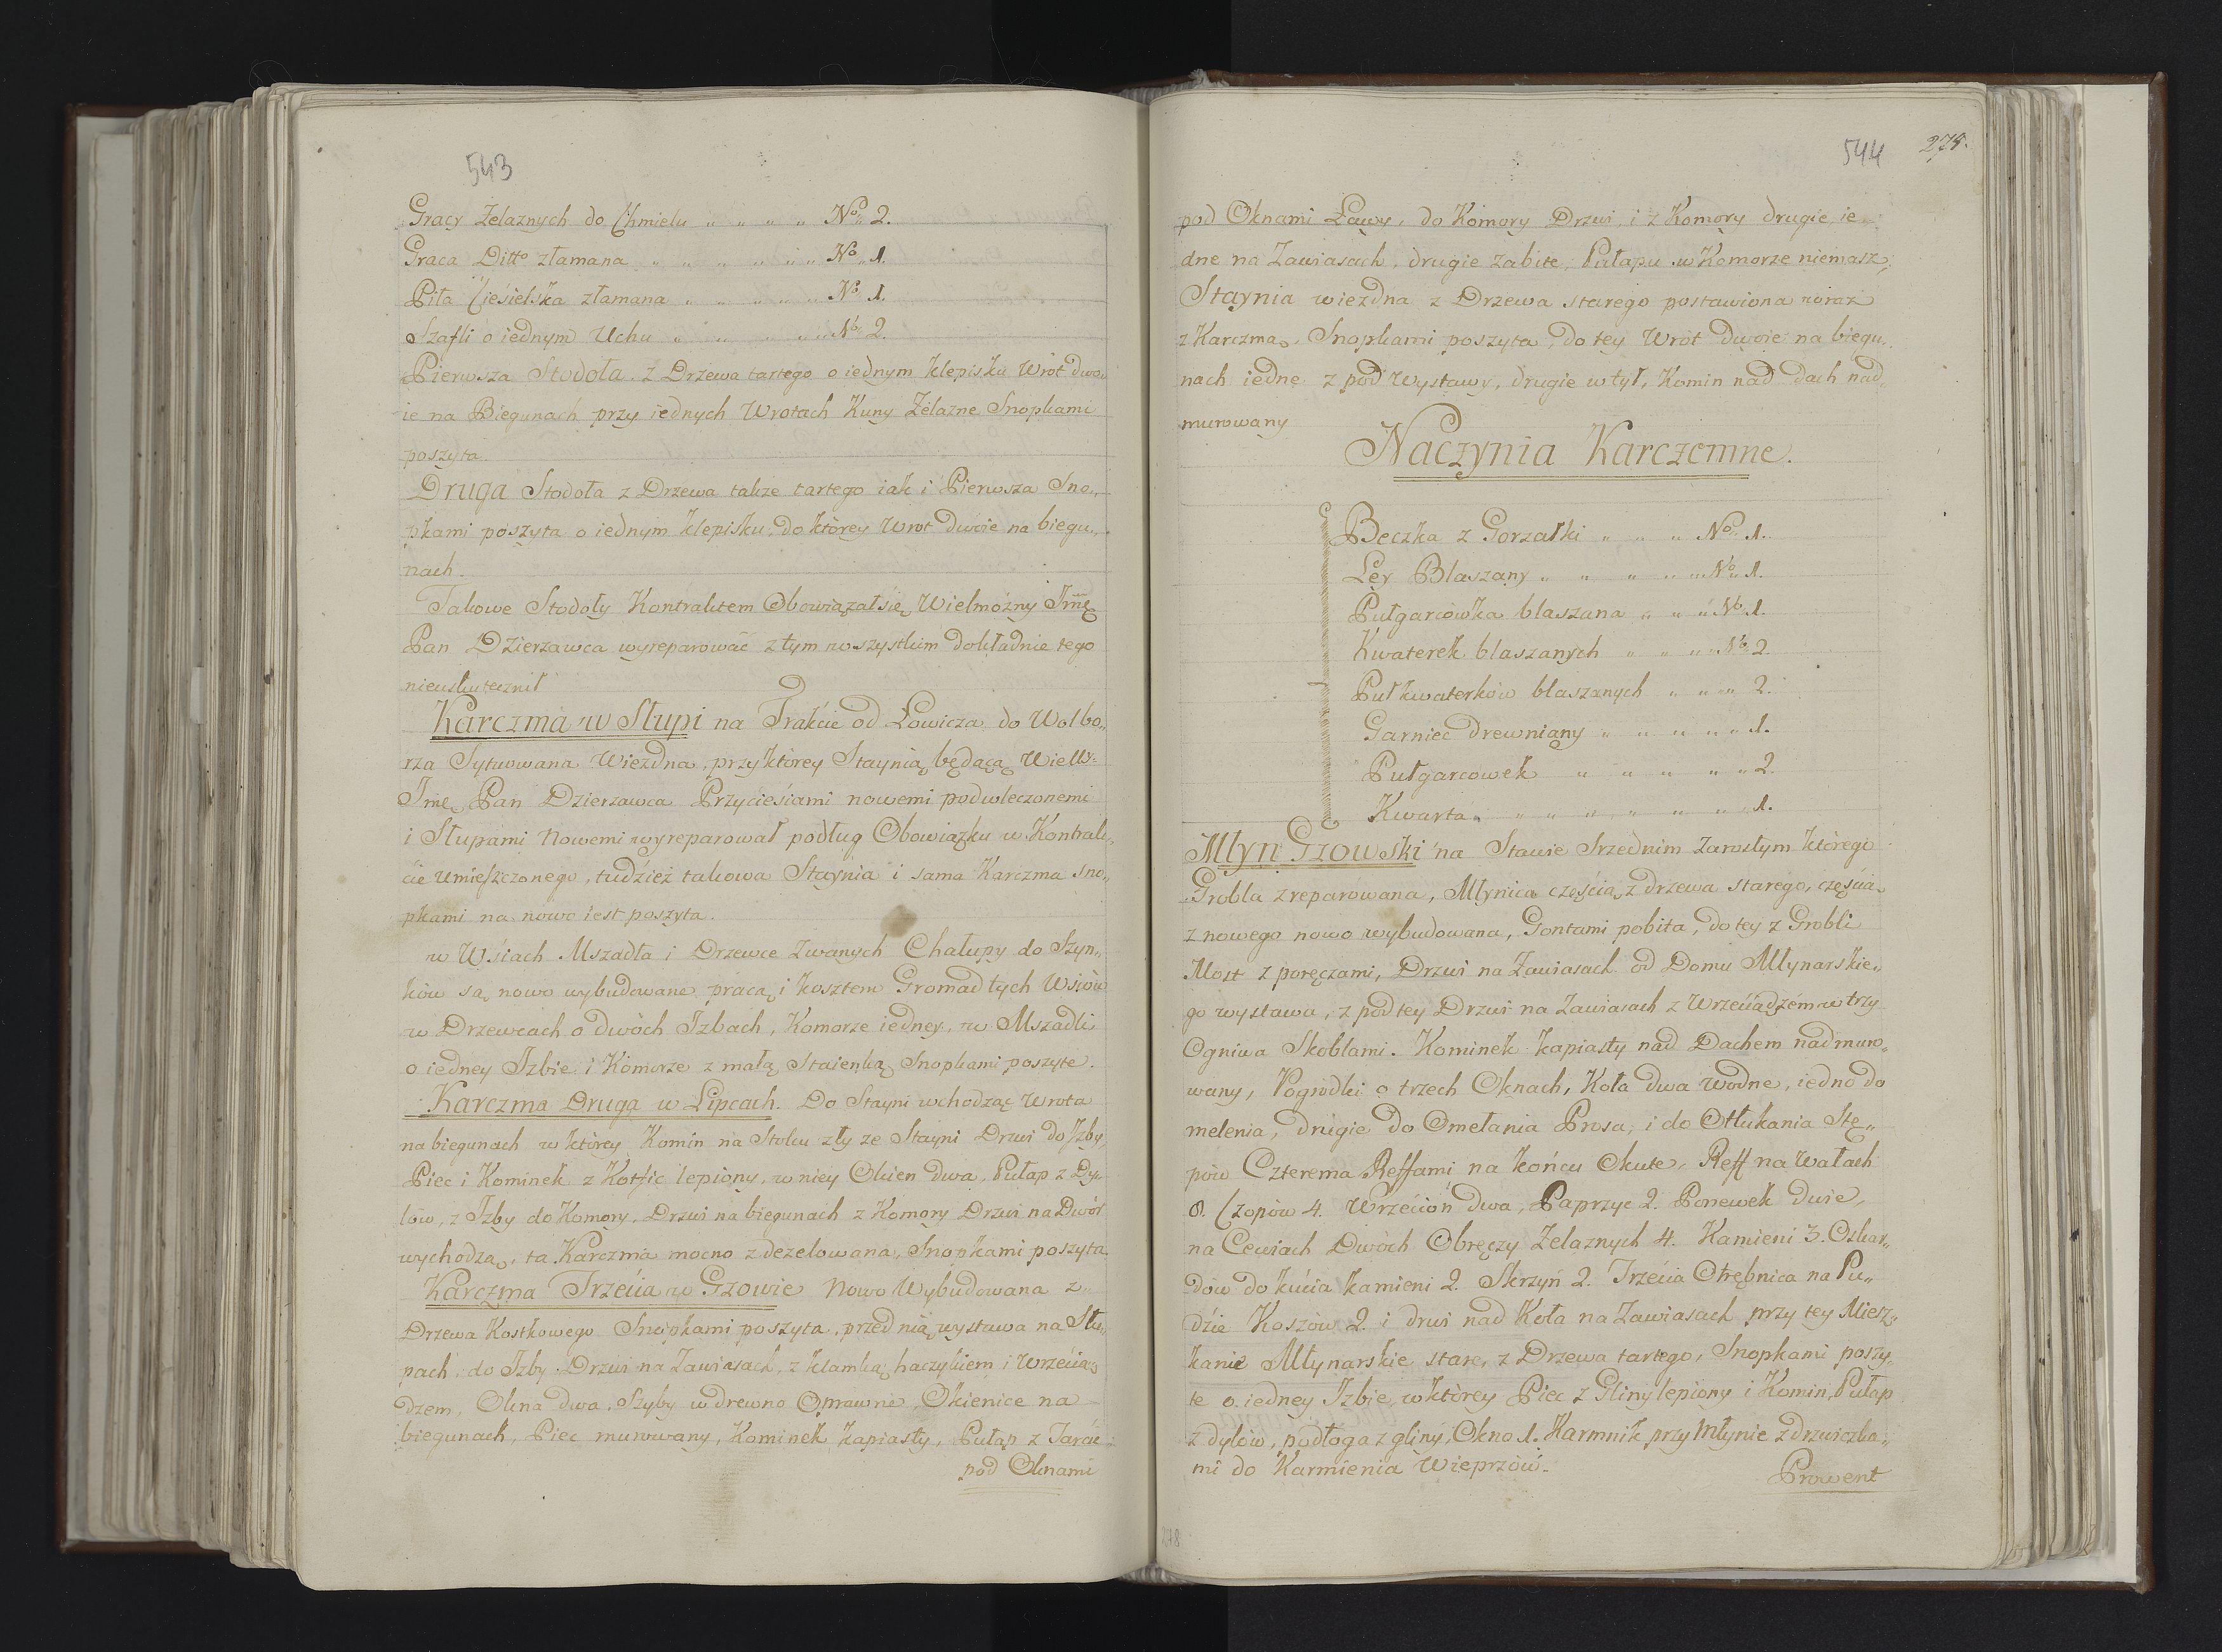 543
Gracy Zelaznych do Chmielu " " " " No " 2.
Graca Ditto złamana " " " " " " No " 1.
Piła Ciesielska złamana " " " " " No 1.
Szafli o iednym Uchu " " " " " No 2.
Pierwsza Stodoła z Drzewa tartego o iednym klepisku Wrót dwo„
ie na Biegunach przy iednych Wrotach Kuny Żelazne Snopkami
poszyta.
Druga Stodoła z Drzewa takze tartego iak i Pierwsza Sno„
pkami poszyta o iednym klepisku, do którey Wrot dwoie na biegu„
nach.
Takowe Stodoły Kontraktem Obowiązał się Wielmożny Jmć
Pan Dzierzawca wyreparować z tym wszystkim dokładnie tego
nieuskutecznił
Karczma w Słupi na Trakcie od Łowicza do Wolbo„
rza Sytuowana Wiezdna, przy którey Staynią będącą Wiellr:
Jmć Pan Dzierzawca Przyciesiami nowemi podwleczonemi
i Słupami Nowemi wyreparował podług Obowiązku w Kontrak„
cie Umieszczonego, tudzież takowa Staynia i sama Karczma sno„
pkami na nowo iest poszyta.
w Wsiach Mszadła i Drzewce zwanych Chałupy do Szyn„
ków są nowo wybudowane pracą i kosztem Gromad tych Wsiów
w Drzewcach o dwóch Izbach, Komorze iedney, w Mszadli
o iedney Izbie i Komorze z małą Staienką Snopkami poszyte.
Karczma Druga w Lipcach. Do Stayni wchodząc Wrota
na biegunach w którey Komin na Stolcu zły ze Stayni Drzwi do Izby,
Piec i Kominek z Kotlic lepiony, w niey Okien dwa, Pułap z Dy„
lów, z Izby do Komory, Drzwi na biegunach z Komory Drzwi na Dwór
wychodzą, ta Karczma mocno zdezelowana, Snopkami poszyta.
Karczma Trzecia w Gzowie Nowo Wybudowana z
Drzewa Kostkowego Snopkami poszyta, przed nią wystawa na Słu„
pach, do Izby Drzwi na Zawiasach, z klamką haczykiem i Wrzecią„
dzem, Okna dwa, Szyby w drewno Oprawne, Okienice na
biegunach, Piec murowany, Kominek kapiasty, Pułap z Tarcic
pod Oknami
544
pod Oknami Ławy, do Komory Drzwi i z Komory drugie ie„
dne na Zawiasach, drugie zabite, Pułapu w Komorze niemasz,
Staynia wiezdna z Drzewa starego postawiona wraz
z Karczmą, Snopkami poszyta, do tey Wrót dwoie na biegu„
nach iedne z pod Wystawy, drugie w tył, Komin nad dach nad„
murowany
Naczynia Karczemne.
Beczka z Gorzałki " " " No " 1.
Ley Blaszany " " " " " No " 1.
Pułgarcówka blaszana " " " No 1.
Kwaterek blaszanych " " " " No 2.
Pułkwaterków blaszanych " " " 2.
Garniec drewniany " " " " " 1.
Pułgarcowek " " " " " 2.
Kwarta " " " " " " " 1.
Młyn Gzowski na Stawie Srzednim Zarosłym którego
Grobla zreparowana, Młynica częścią z drzewa starego, częścią
z nowego nowo wybudowana, Gontami pobita, do tey z Grobli
Most z poręczami, Drzwi na Zawiasach od Domu Młynarskie„
go wystawa, z pod tey Drzwi na Zawiasach z Wrzeciądzem w trzy
Ogniwa Skoblami. Kominek kapiasty nad Dachem nadmuro„
wany, Pogrodki o trzech Oknach, Koła dwa wodne, iedno do
melenia, drugie do Omełania Prosa, i do Otłukania Stę„
pów Czterema Reffami na końcu Okute, Reff na Wałach
8. Czopów 4. Wrzecion dwa, Paprzyc 2. Panewek dwie,
na Cewiach Dwóch Obręczy Zelaznych 4. Kamieni 3. Oskar„
dów do kucia kamieni 2. Skrzyń 2. Trzecia Otrębnica na Pu„
dzie Koszow 2. i drwi nad Koła na Zawiasach przy tey Miesz„
kanie Młynarskie stare, z Drzewa tartego, Snopkami poszy„
te o iedney Izbie, w którey Piec z Gliny lepiony i Komin, Pułap
z dylow, podłoga z gliny, Okno 1. Karmnik przy Młynie z drzwiczka„
mi do Karmienia Wieprzów.
Prowent
278